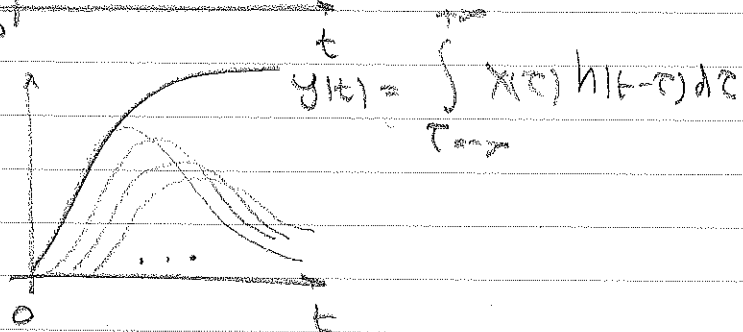 t
y(t) = ∫_{τ=-∞}^{+∞} x(τ) h(t-τ) dτ
...
0
t